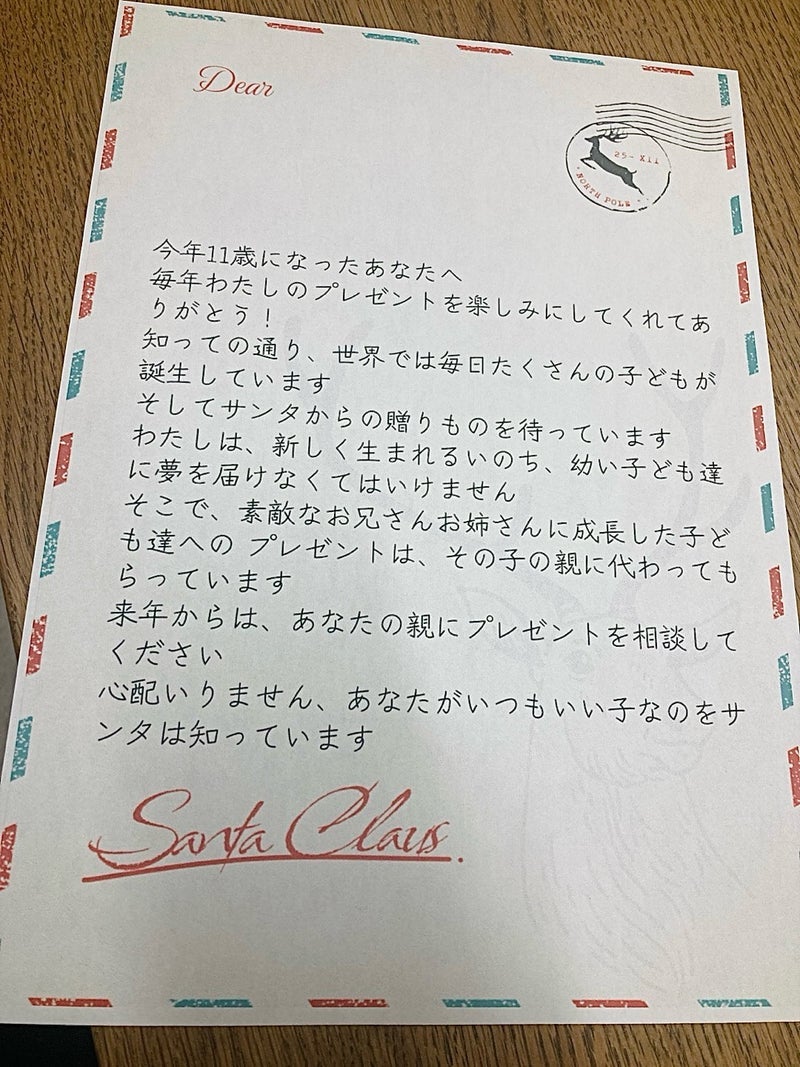 Dear
25- XII
NORTH POLE
今年11歳になったあなたへ
毎年わたしのプレゼントを楽しみにしてくれてあ
りがとう！
知っての通り、世界では毎日たくさんの子どもが
誕生しています
そしてサンタからの贈りものを待っています
わたしは、新しく生まれるいのち、幼い子ども達
に夢を届けなくてはいけません
そこで、素敵なお兄さんお姉さんに成長した子ど
も達への プレゼントは、その子の親に代わっても
らっています
来年からは、あなたの親にプレゼントを相談して
ください
心配いりません、あなたがいつもいい子なのをサ
ンタは知っています
Santa Claus.